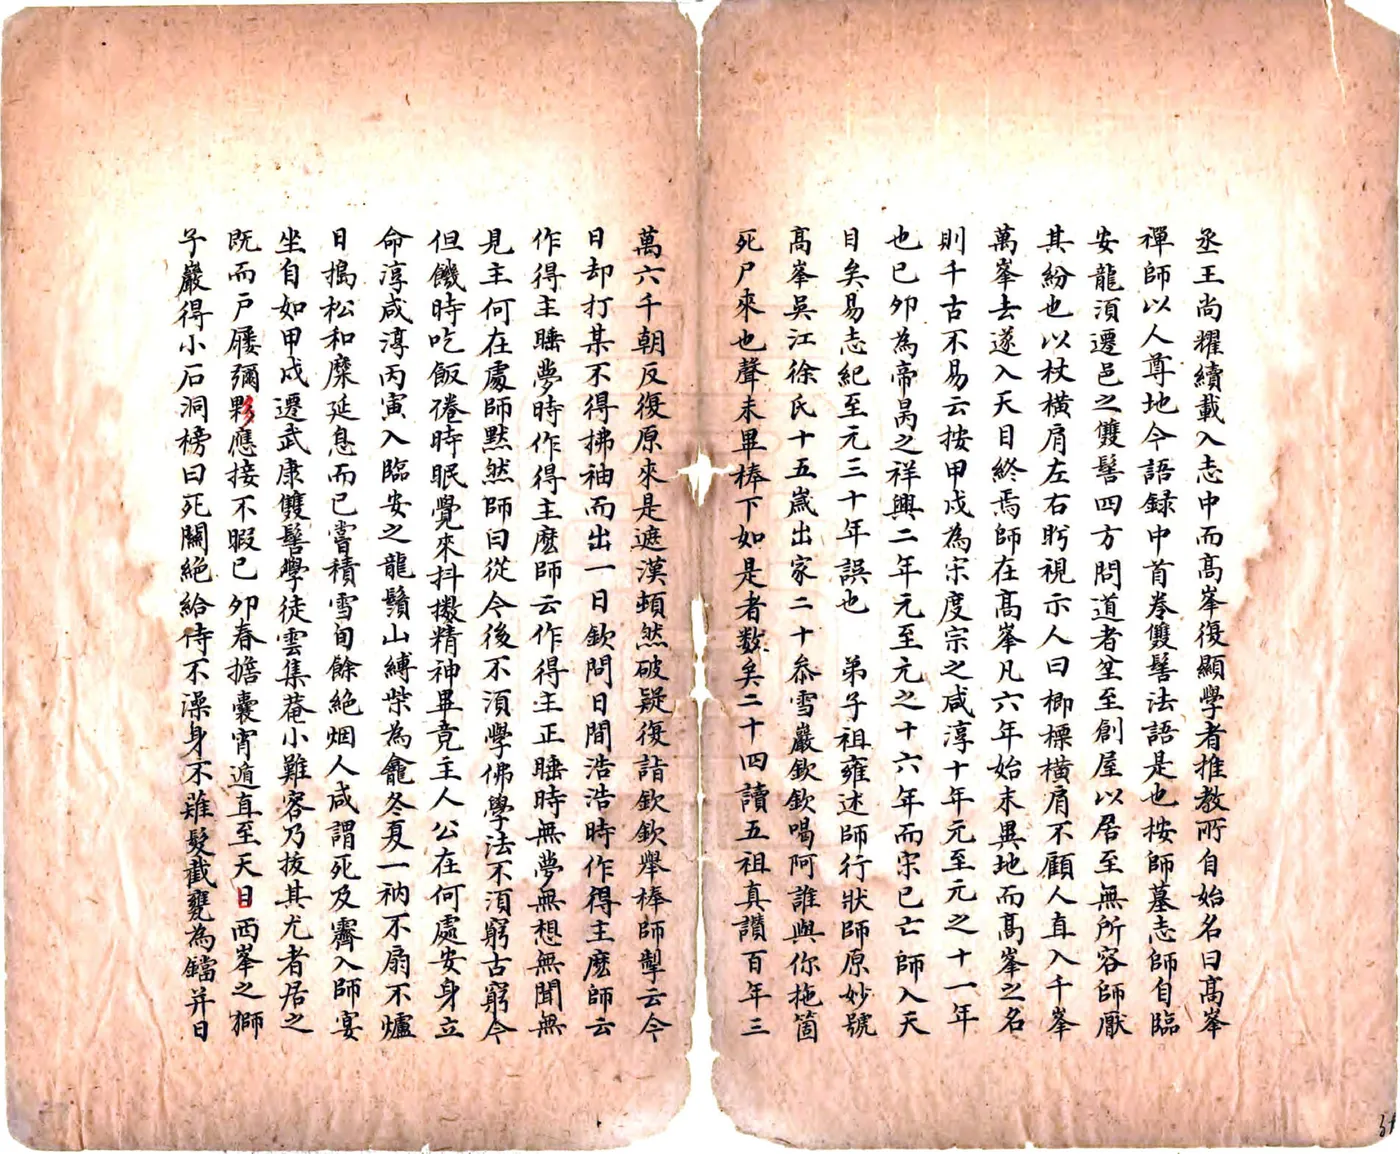 丞王尚耀續載入志中而髙峯復顯學者推教所自始名曰髙峯
禪師以人尊地今語録中首卷雙髻法語是也桉師墓志師自臨
安龍湏遷邑之雙髻四方問道者坌至創屋以居至無所容師厭
其紛也以杖橫肩左右眄視示人曰楖㮚橫肩不顧人直入千峯
萬峯去遂入天目終焉師在髙峯凡六年始末異地而髙峯之名
則千古不易云按甲戍為宋度宗之咸淳十年元至元之十一年
也已夘為帝昺之祥興二年元至元之十六年而宋已亡師入天
目矣易志紀至元三十年誤也　弟子祖雍述師行狀師原妙號
髙峯吳江徐氏十五歲出家二十叅雪巖欽欽喝阿誰與你拖箇
死尸來也聲未畢棒下如是者数矣二十四讀五祖真讚百年三
萬六千朝反復原來是遮漢頓然破疑復詣欽欽舉棒師掣云今
日却打某不得拂袖而出一日欽問日間浩浩時作得主麽師云
作得主睡夢時作得主麽師云作得主正睡時無夢無想無聞無
見主何在處師黙然師曰從今後不湏學佛學法不湏窮古窮今
但饑時吃飯倦時眠覺來抖擻精神畢竟主人公在何處安身立
命淳咸淳丙寅入臨安之龍鬚山縛柴為龕冬夏一衲不扇不爐
日搗松和糜延息而已嘗積雪旬餘絶烟人咸謂死及霽入師宴
坐自如甲戍遷武康雙髻學徒雲集菴小難容乃拔其尤者居之
既而戸屨彌夥應接不暇已夘春擔囊宵遁直至天目西峯之獅
子巖得小石洞榜曰死關絶給侍不澡身不薙髮截甕為鐺并日